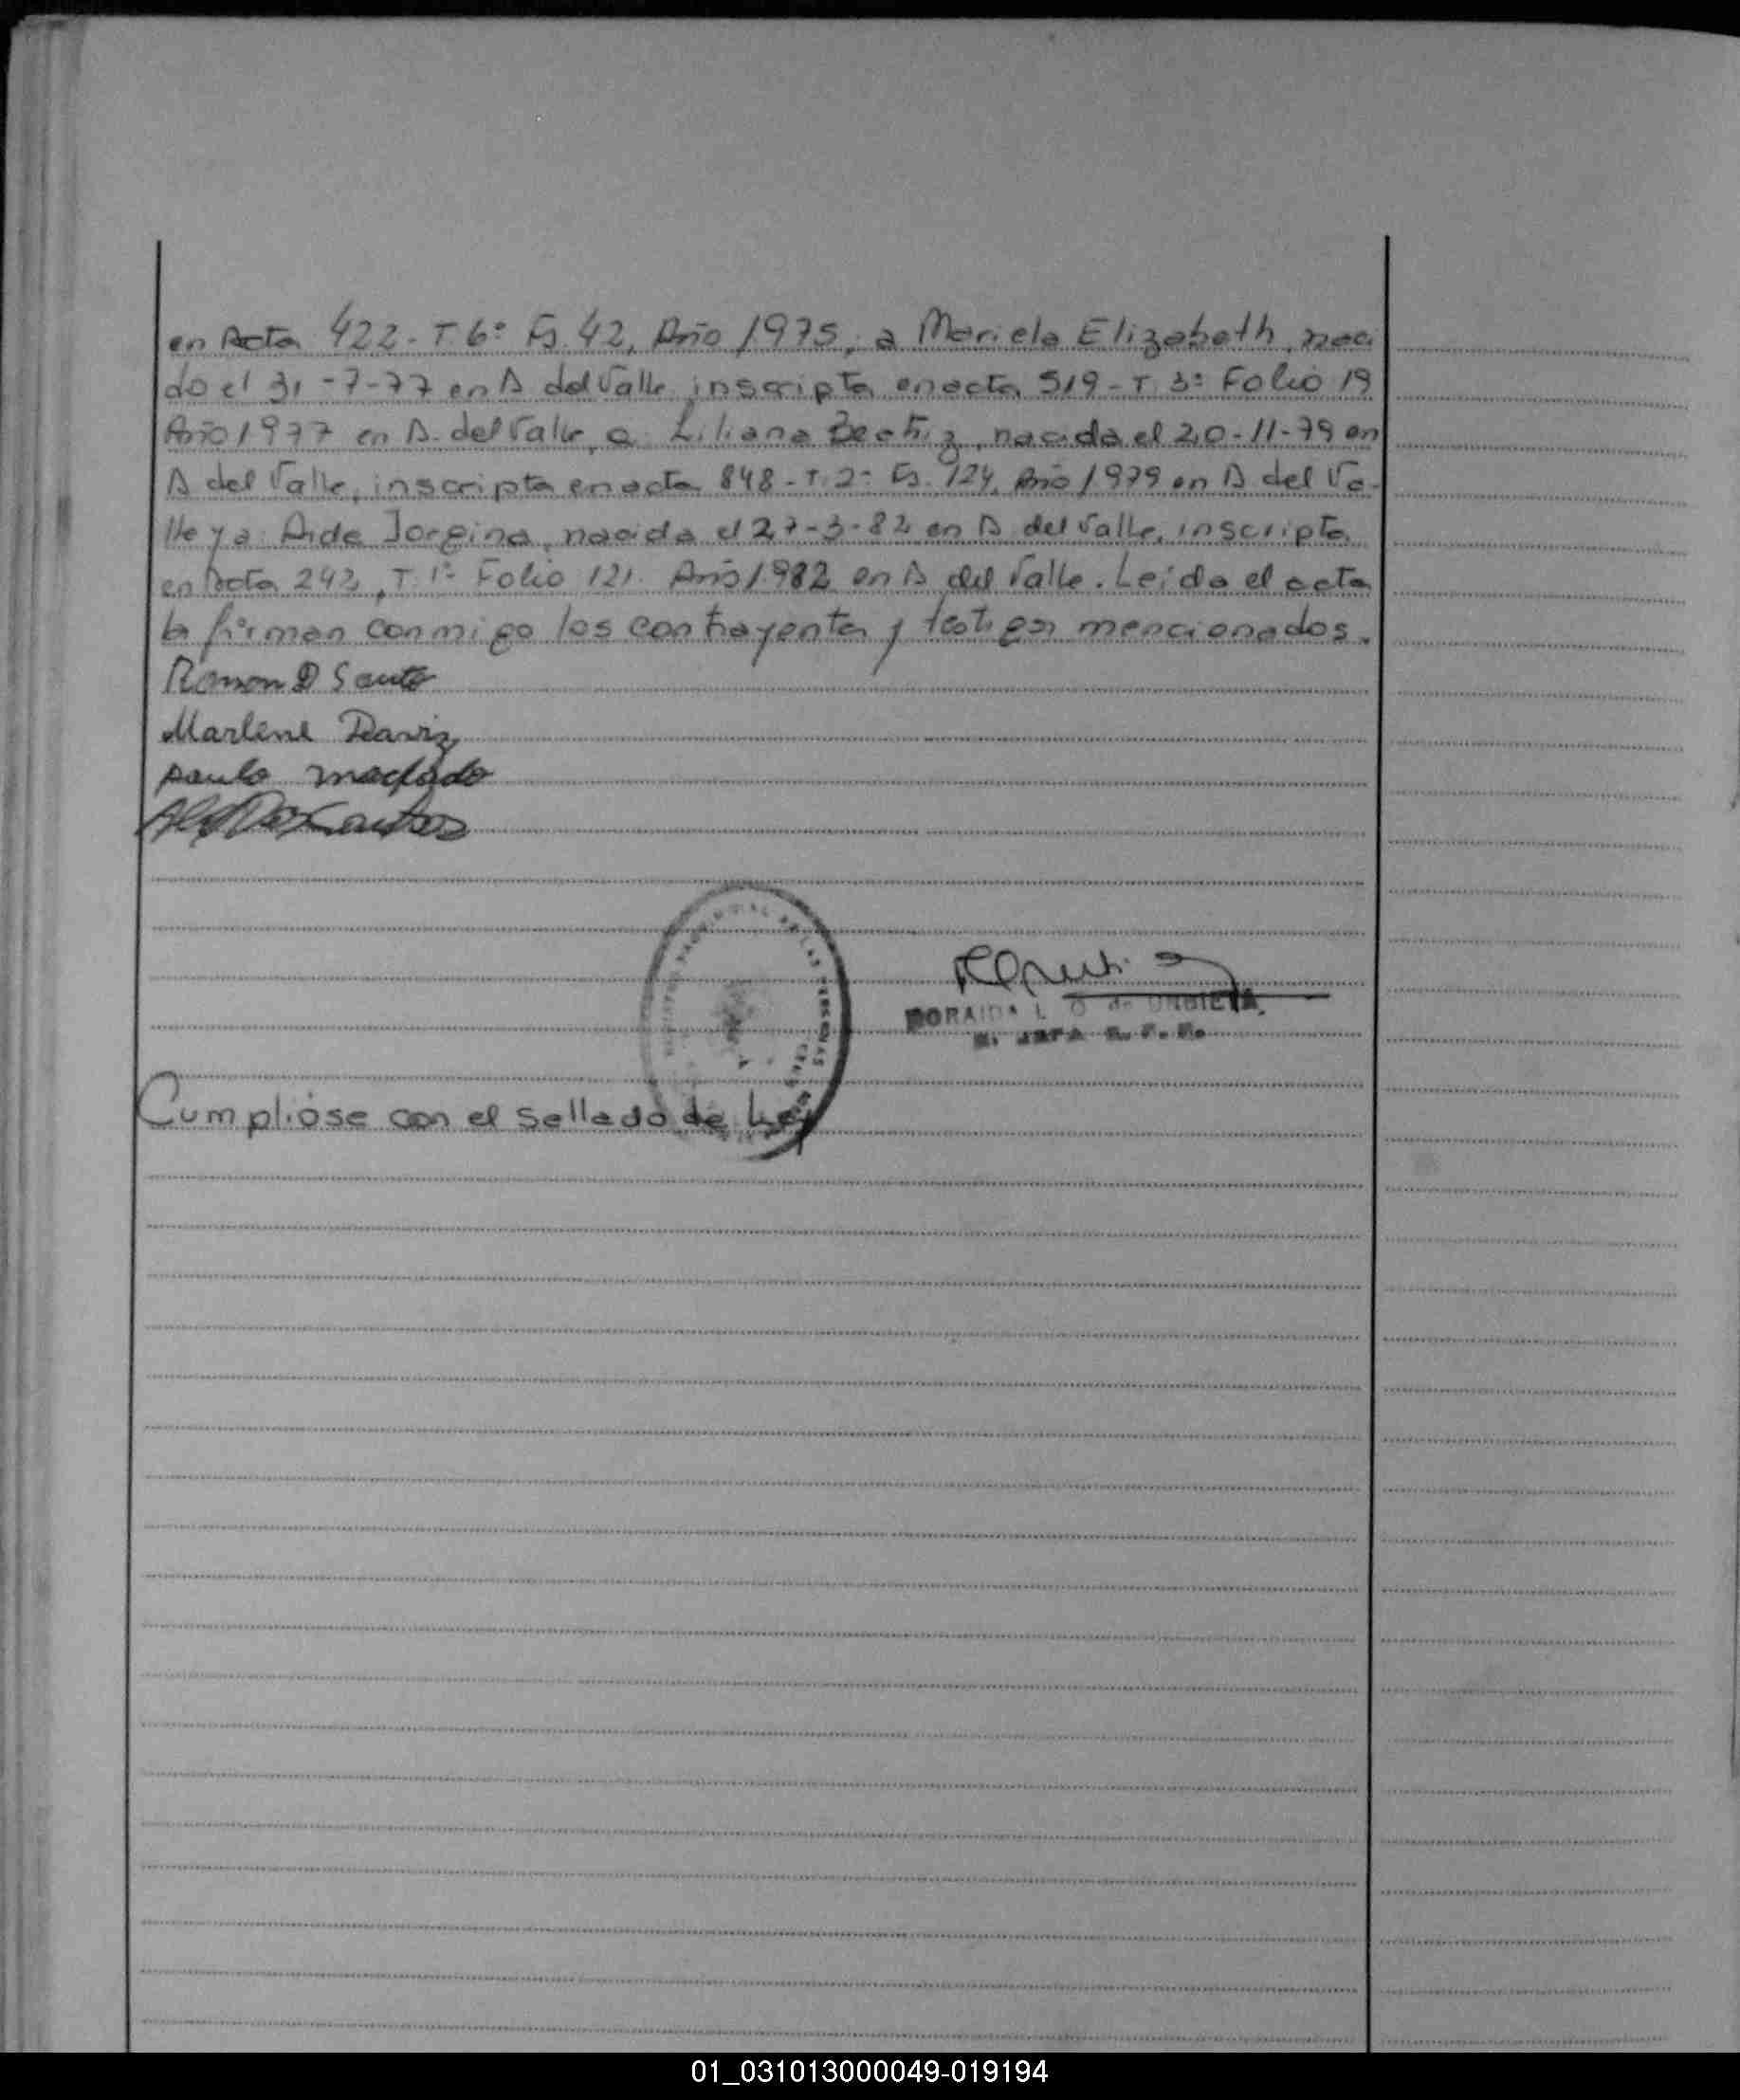 en Acta 422 - T. 6º Fs. 42, Año 1975, a Mariela Elizabeth, naci
do el 31-7-77 en A del Valle inscripta en acta 519 - T. 3º Folio 19
Año 1977 en A. del Valle, a Liliana Beatriz, nacida el 20-11-79 en
A del Valle, inscripta en acta 848 - T. 2º Fs. 124, Año 1979 en A del Va-
lle y a Aide Jorgina, nacida el 27-3-82 en A del Valle, inscripta
en Acta 243, T. 1º Folio 121. Año 1982 en A del Valle. Leída el acta
la firman conmigo los contrayentes y testigos mencionados.
Ramon D Santo
Marlene
paulo machado
PROVINCIAL DE LAS PERSONAS
ORAIDA L O de URBIETA
JEFA
Cumplióse con el sellado de Ley
01_031013000049-019194